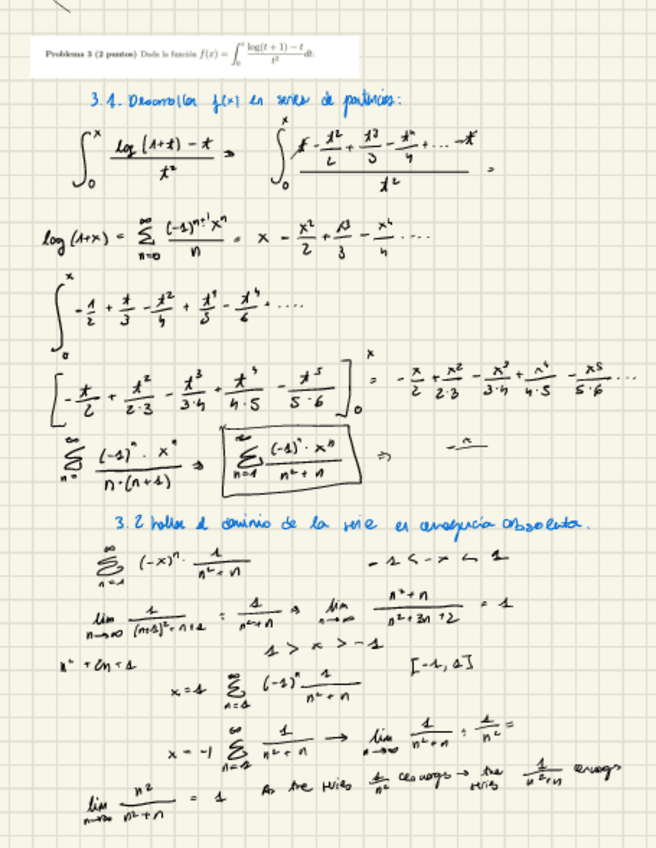 Problema 3 (2 puntos) Dada la función f(x) = ∫_0^x (log(t + 1) − t)/t² dt:
3.1. Desarrollar f(x) en series de potencias:
∫_0^x (log (1+t) - t)/t² ⇒ ∫_0^x (t - t²/2 + t³/3 - t⁴/4 + ... - t)/t² =
log (1+x) = Σ_{n=0}^∞ (-1)^{n+1} x^n / n = x - x²/2 + x³/3 - x⁴/4 ....
∫_0^x -1/2 + t/3 - t²/4 + t³/5 - t⁴/6 + ....
[-t/2 + t²/(2·3) - t³/(3·4) + t⁴/(4·5) - t⁵/(5·6)]_0^x = -x/2 + x²/(2·3) - x³/(3·4) + x⁴/(4·5) - x⁵/(5·6) ...
Σ_{n=}^∞ (-1)^n · x^n / (n·(n+1)) ⇒ Σ_{n=1}^∞ (-1)^n · x^n / (n² + n) ⇒ -x
3.2 hallar el dominio de la serie es convergencia absoluta.
Σ_{n=1}^∞ (-x)^n · 1/(n² + n) -1 < -x < 1
lim_{n→∞} 1/((n+1)² + n+1) ÷ 1/(n²+n) ⇒ lim_{n→∞} (n² + n)/(n² + 3n + 2) = 1
1 > x > -1
n² + 2n + 1 [-1, 1]
x = 1 Σ_{n=1}^∞ (-1)^n 1/(n² + n)
x = -1 Σ_{n=1}^∞ 1/(n² + n) → lim_{n→∞} 1/(n² + n) ÷ 1/n² =
lim_{n→∞} n²/(n² + n) = 1 As the series 1/n² converges → the series 1/(n²+n) converge